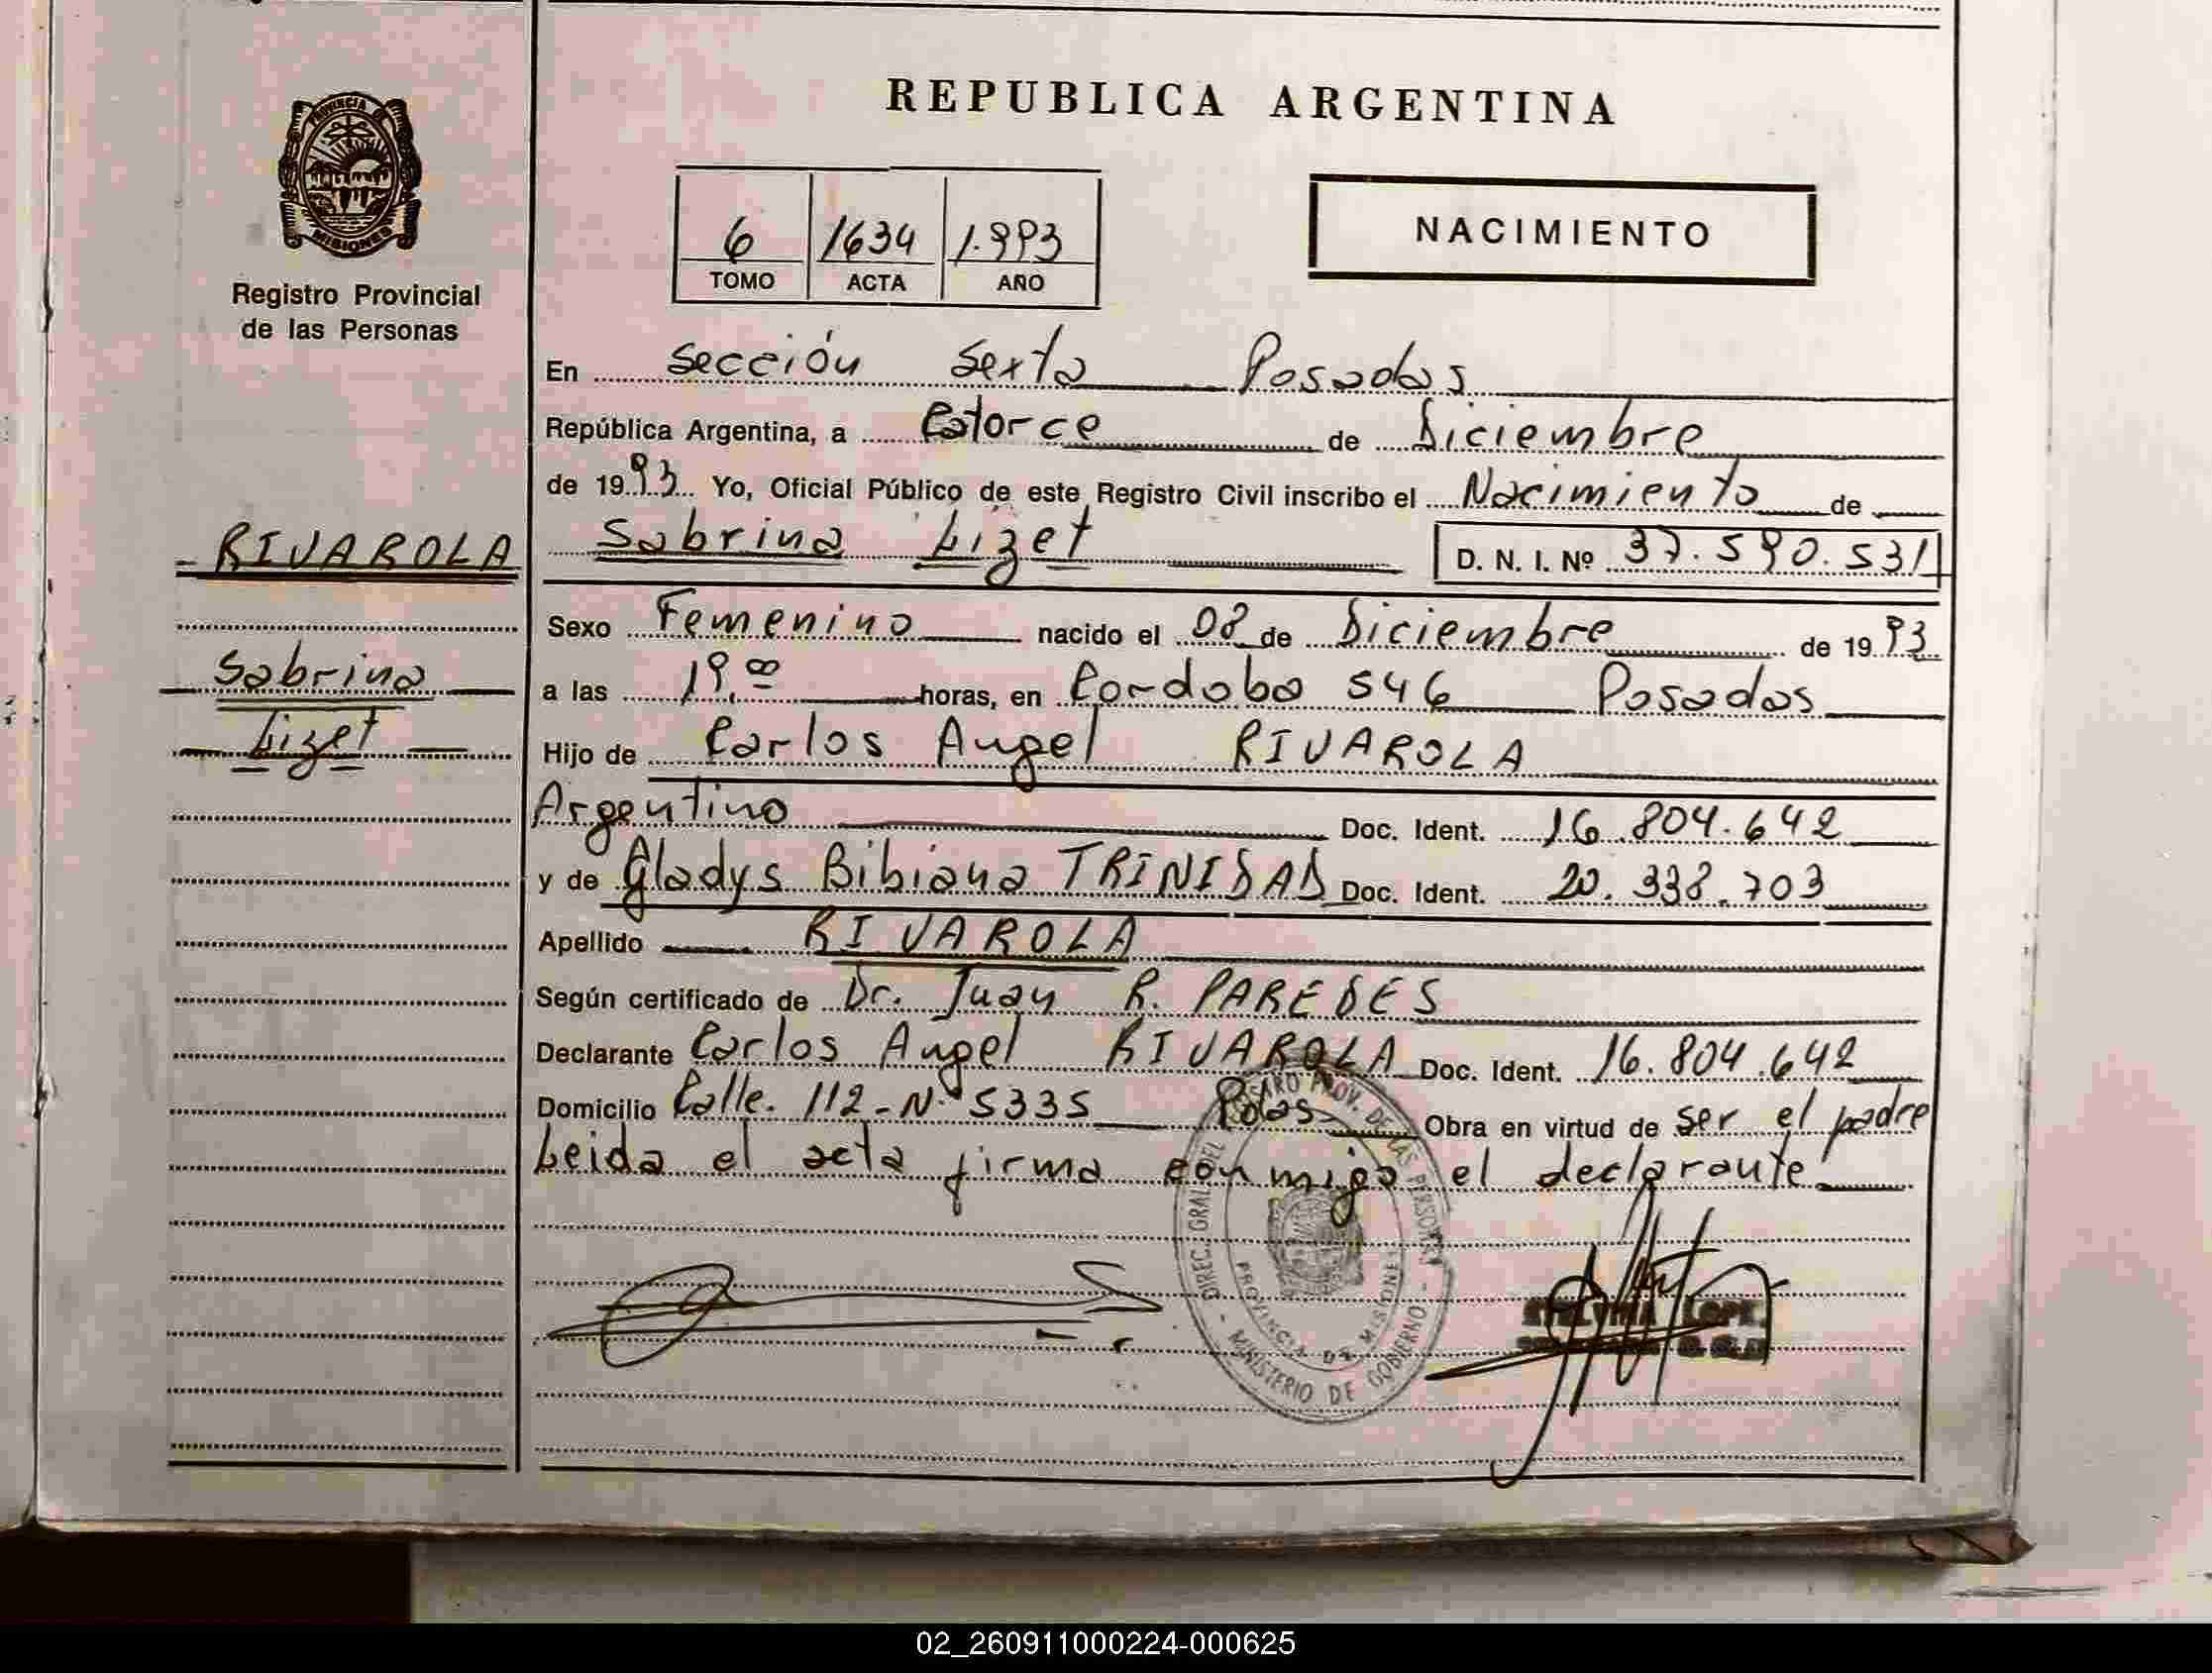 REPUBLICA ARGENTINA
PROVINCIA
MISIONES
Registro Provincial
de las Personas
6 1634 1.993
TOMO ACTA AÑO
NACIMIENTO
En Sección Sexta Posadas
República Argentina, a Catorce de Diciembre
de 1993 Yo, Oficial Público de este Registro Civil inscribo el Nacimiento de
RIVAROLA
Sabrina Lizet D. N. I. Nº 37.590.531
Sexo Femenino nacido el 08 de Diciembre de 1993
Sabrina
Lizet
a las 19,00 horas, en Cordoba 546 Posadas
Hijo de Carlos Angel RIVAROLA
Argentino Doc. Ident. 16.804.642
y de Gladys Bibiana TRINIDAD Doc. Ident. 20.338.703
Apellido RIVAROLA
Según certificado de Dr. Juan R. PAREDES
Declarante Carlos Angel RIVAROLA Doc. Ident. 16.804.642
Domicilio Calle. 112-Nº 5335 Pdas Obra en virtud de ser el padre
Leida el acta firma conmigo el declarante
DIREC. GRAL. DEL PROV. DE LAS PERSONAS
MINISTERIO DE GOBIERNO
PROVINCIA DE MISIONES
02_260911000224-000625